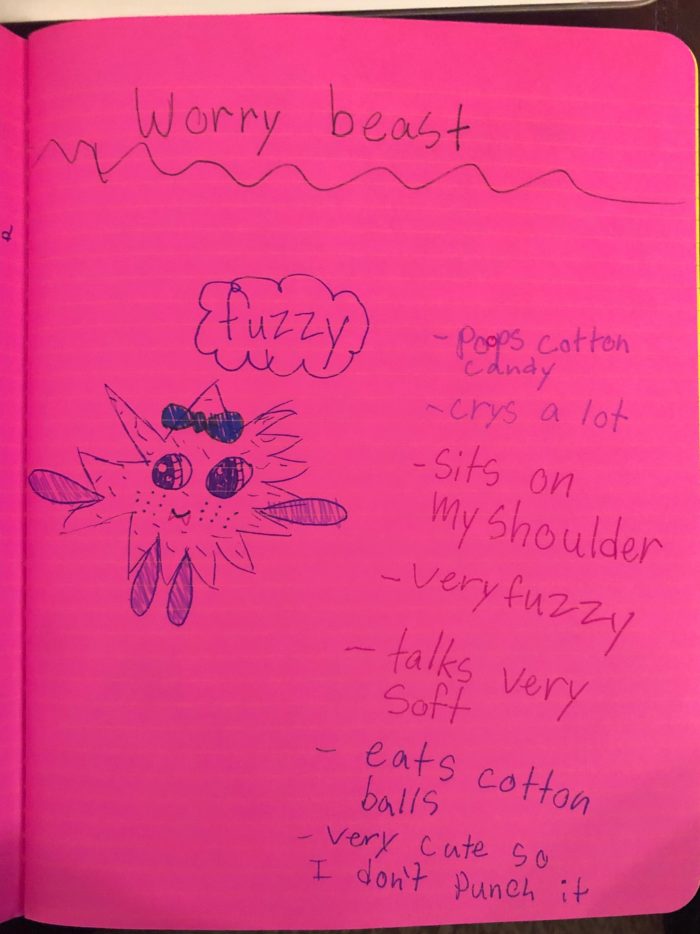 Worry beast
fuzzy
- Poops cotton
candy
- crys a lot
- Sits on
My Shoulder
- Very fuzzy
- talks very
Soft
- eats cotton
balls
- very cute so
I don't Punch it